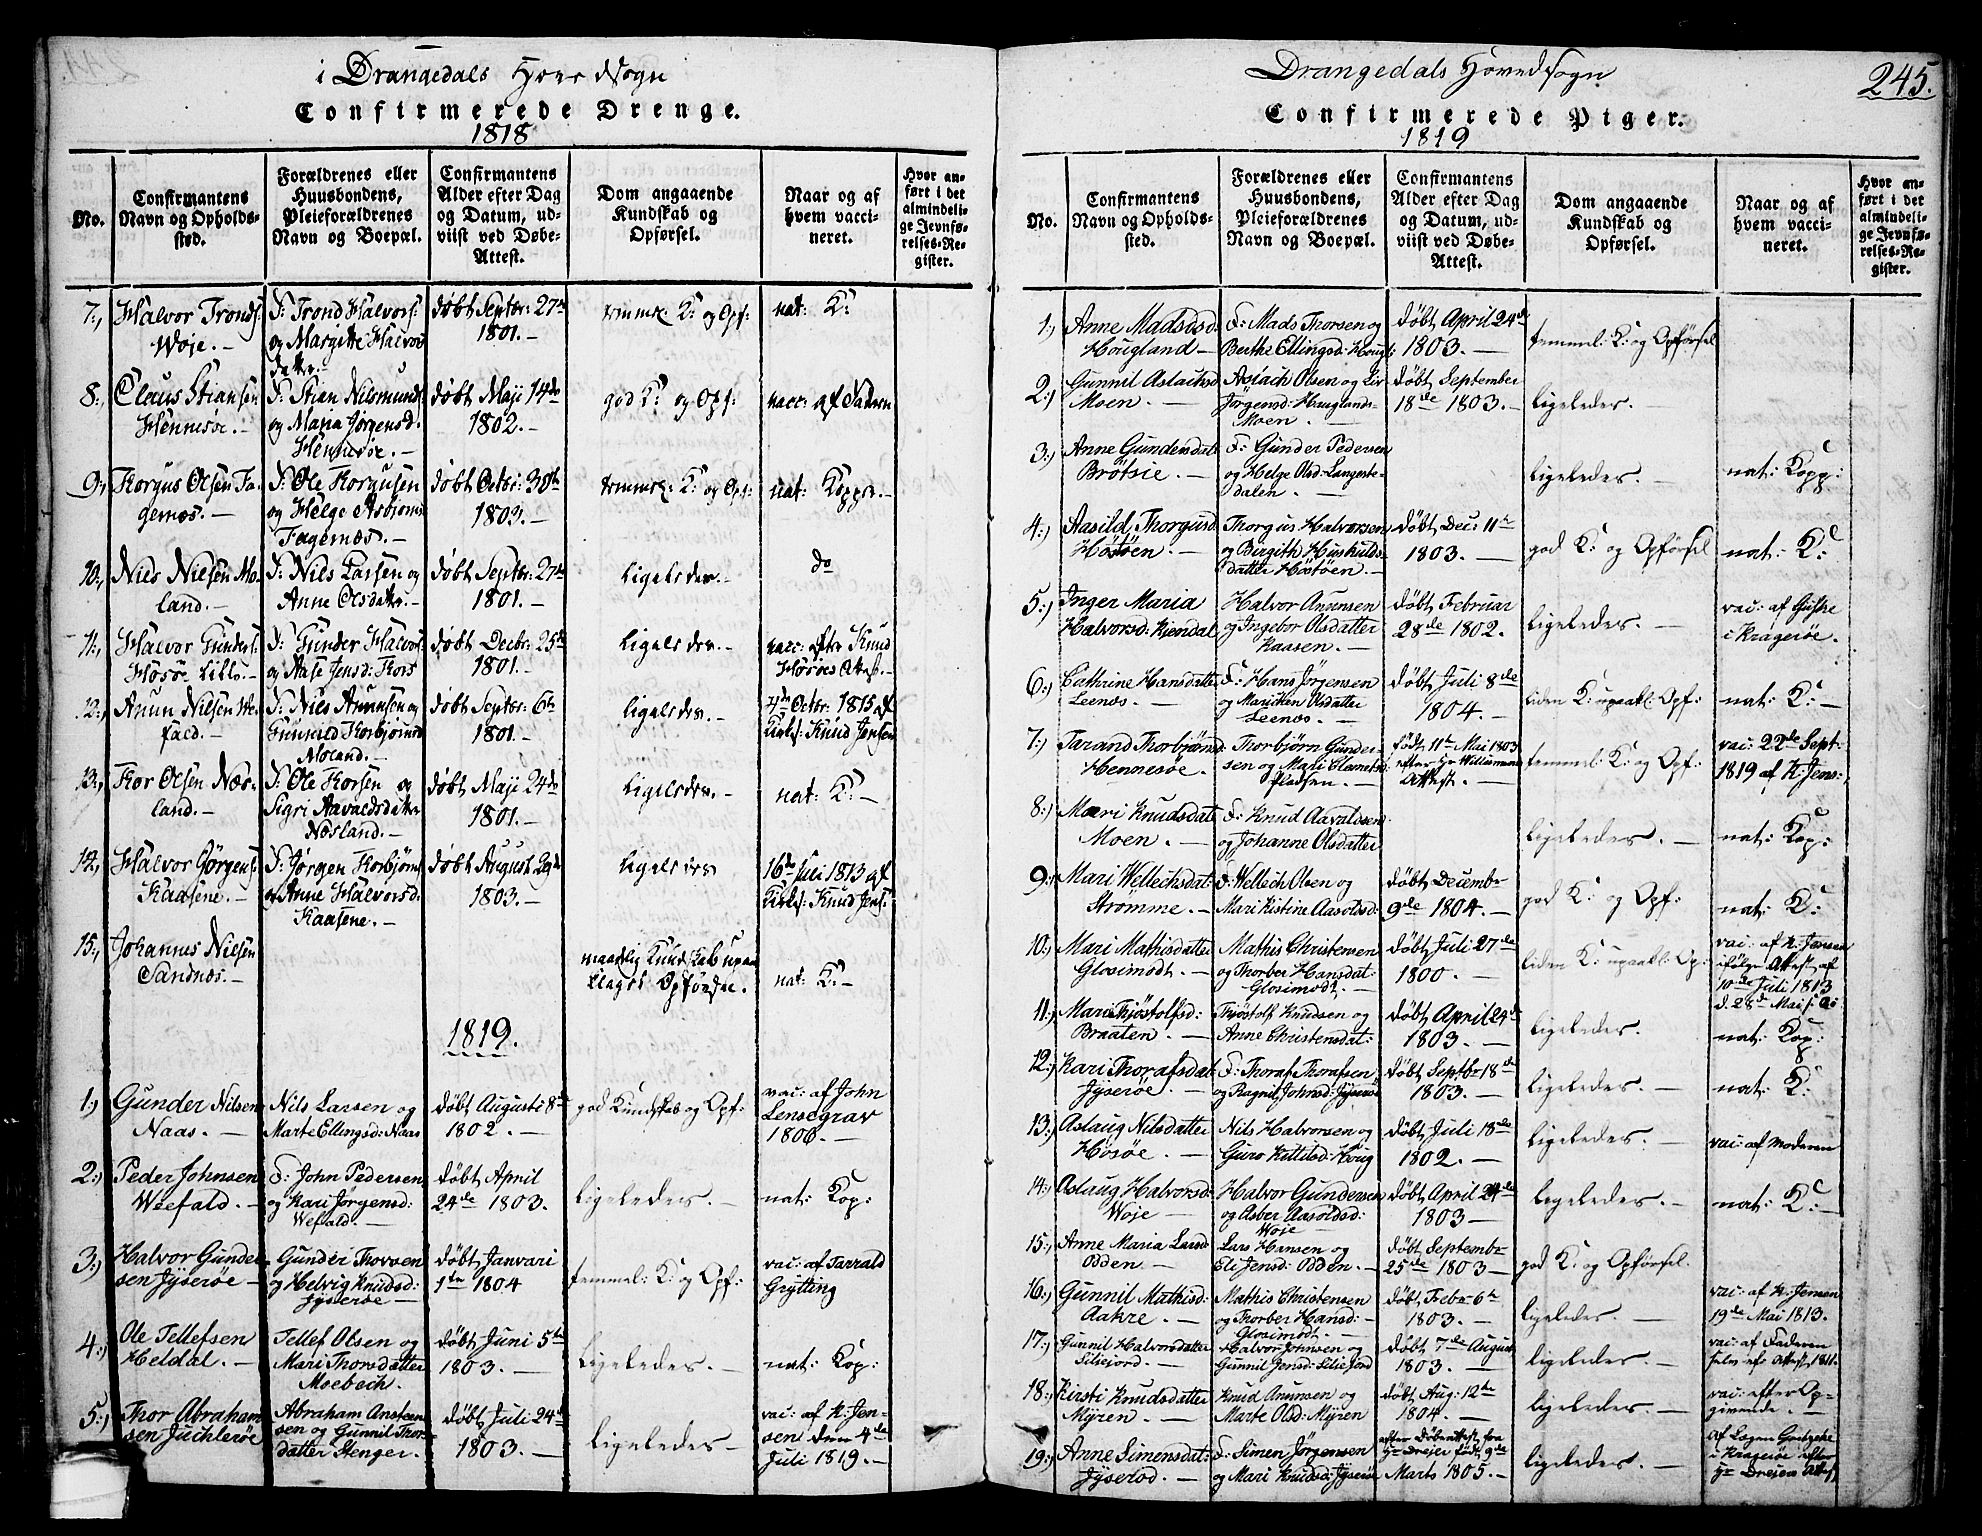 i Drangedals Hovedsogn
Confirmerede Drenge.
1818
No.
Confirmantens Navn og Opholdssted.
Forældrenes eller Huusbondens, Pleieforældrenes Navn og Boepæl.
Confirmantens Alder efter Dag og Datum, udviist ved Døbe-Attest.
Dom angaaende Kundskab og Opførsel.
Naar og af hvem vaccineret.
Hvor anført i det almindelige Jevnførelses-Register.
7:, Halvor Tronds: Woje.— F: Trond Halvors: og Margitte Halvorsdatter.— døbt Septbr: 27de 1801.— temmel: K: og Opf: nat: K:
8:, Claus Stiansen Hennesøe.— F: Stian Nilsmunds og Maria Jørgensd: Hennesøe.— døbt Maji 14de 1802.— god K: og Opf: vacc: af
9:, Torgus Olsen Fagernæs.— F: Ole Torgusen og Helge Asbjørns Fagernæs.— døbt Octbr: 30te 1803.— temmel: K: og Opf: nat: Kopper.—
10:, Niels Nielsen Moland.— F: Nils Larsen og Anne Olsdatter.— døbt Septbr: 27de 1801.— ligeledes.— do
11:, Halvor Gunders: Høsø Lille.— F: Gunder Halvors: og Aase Jensd: Tors døbt Decbr: 25de 1801.— ligeledes.— vacc: efter Knud Høsøes Attest.—
12:, Anun Nielsen Wefald.— F: Niels Anunsen og Gunnild Torbjørnsd Moland.— døbt Septbr: 6te 1801.— ligeledes.— 4de Octbr: 1815 af Kirks: Knud Jensen
13:, Tor Olsen Næsland.— F: Ole Torsen og Sigri Aavaldsdatter Næsland.— døbt Maji 24de 1801.— ligeledes.— nat: K:—
14:, Halvor Jørgens: Kaasene.— F: Jørgen Torbjørns og Anne Halvorsd: Kaasene.— døbt August 29de 1803.— ligeledes 16de Juli 1813 af Kirks: Knud Jens:
15:, Johannes Nielsen Sandnæs.— maadelig Kundskab upaaklaget Opførsel. nat: K:—
1819.
1:) Gunder Nilsen Naas.— Nils Larsen og Marte Ellingsd: Naas døbt Augusti 8de 1802.— god Kundskab og Opf: vac: af John Lensegrav 1806.—
2:) Peder Johnsen Weefald.— F: John Pedersen og Kari Jørgensd: Wefald.— døbt April 24de 1803. ligeledes.— nat: Kop:
3:) Halvor Gundersen Jyserøe— Gunder Thovsen og Helvig Knudsd: Jyserøe— døbt Janvari 1te 1804 temmel: K: og Opf: vac: af Tarrald Grytting
4:) Ole Tellefsen Heldal.— Tellef Olsen og Mari Thorsdatter Moebech. døbt Juni 5te 1803.— ligeledes.— nat: Kop:
5:) Thor Abrahamsen Juchlerøe Abraham Anstensen og Gunnil Thorsdatter Stenger. døbt Juli 24de 1803.— ligeledes— vac: af K: Jensen den 4de Juli 1819.—
Drangedals Hovedsogn
245.
Confirmerede Piger.
1819
No.
Confirmantens Navn og Opholdssted.
Forældrenes eller Huusbondens, Pleieforældrenes Navn og Boepæl.
Confirmantens Alder efter Dag og Datum, udviist ved Døbe-Attest.
Dom angaaende Kundskab og Opførsel.
Naar og af hvem vaccineret.
Hvor anført i det almindelige Jevnførelses-Register.
1:) Anne Madsesd. Hougland— F: Mads Thorsen og Berthe Ellingsd: Hougl: døbt April 24de 1803.— temmel: K: og Opførsel
2:) Gunnil Aslachsd Moen.— Aslach Olsen og Liv Jørgensd: Houglands-Moen.— døbt September 18de 1803.— ligeledes.—
3:) Anne Gundersdat: Brøtsie.— F: Gunder Pedersen og Helge Olsd: Langestedalen.— ligeledes.— nat: Kopp:
4:) Aasild Thorgusd. Høstøen.— Thorgus Halvorsen og Birgith Huskuldsdatter Høstøen.— døbt Dec: 11te 1803.— god K: og Opførsel nat: K:
5:) Inger Maria Halvorsd: Kjendal Halvor Anunsen og Ingebor Olsdatter Kaasen.— døbt Februar 28de 1802.— ligeledes.— vac: af Gjiske i Kragerøe.—
6:) Cathrine Hansdatter Leenæs.— F: Hans Jørgensen og Mariken Olsdatter Leenæs.— døbt Juli 8de 1804.— liden K: upaakl: Opf: nat: K:—
7:) Tarand Thorbjørns Hennesøe.— Thorbjørn Gundersen og Mari Clemets: Pladsen.— født 11te Mai 1803 efter Hr Willumsens Attest.— temmel: K: og Opf: vac: 22de Sept: 1819 af K: Jens:
8:) Mari Knudsdat: Moen.— F: Knud Aavaldsen og Johanne Olsdatter ligeledes.— nat: Kop:
9:) Mari Wellechsdat: Strømme.— F: Wellech Olsen og Mari Kistine Aasoldsd: døbt Decembr 9de 1804.— god K: og Opf: nat: K:
10:) Mari Mathisdatter Glosimodt.— Mathis Christensen og Thorber Hansdat: Glosimodt.— døbt Juli 27de 1800.— liden K: upaakl: Op: vac: af K: Jensen ifølge Attest af 10de Juli 1813 d. 28de Mai s: A:
11:) Mari Tjøstolfsd: Braaten.— Tjøstolf Knudsen og Anne Christensdat: døbt April 24de 1803.— ligeledes.— nat: Kop:
12:) Kari Thorafsdat: Jyserøe.— F: Thoraf Thorafsen og Ragnil Johnsd: Jyserøe døbt Septbr 18de 1803.— ligeledes.— nat: K:
13:) Aslaug Nilsdatter Høsøe.— Nils Halvorsen og Guro Kittilsd: Houg døbt Juli 18de 1802.— ligeledes.— vac: af Moderen
14:) Aslaug Halvorsd: Woje— Halvor Gundersen og Asber Aasoldsd: Woje døbt April 24de 1803— ligeledes.— nat: K:—
15:) Anne Maria Larsd Odden— Lars Hansen og Eli Jensd: Odden.— døbt Septembr 25de 1803— god K: og Opførsel.
16:) Gunnil Mathisd: Aakre.— Mathis Christensen og Thorber Hansd: Glosimodt.— døbt Febr 6te 1803.— ligeledes.— vac: af K: Jensen 19de Mai 1813.
17:) Gunnil Halvorsdatter Siliejord.— Halvor Johnsen og Gunnil Jensd: Silie Jord døbt 7de August 1803.— ligeledes.— vac: af Faderen selv efter Attest 1811.
18:) Kirsti Knudsdatter Mÿren.— Knud Anunsen og Marte Olsd: Mÿren døbt Aug: 12te 1804.— ligeledes.— vac: efter Opgivende.—
19:) Anne Simensdat: Jyserod.— F: Simen Jørgensen og Mari Knudsd: Jyserøe efter Døbeattest fra Hr Drejer født 9de Marts 1805.— ligeledes.— af i Kragerøe efter Hr Drejers Attest